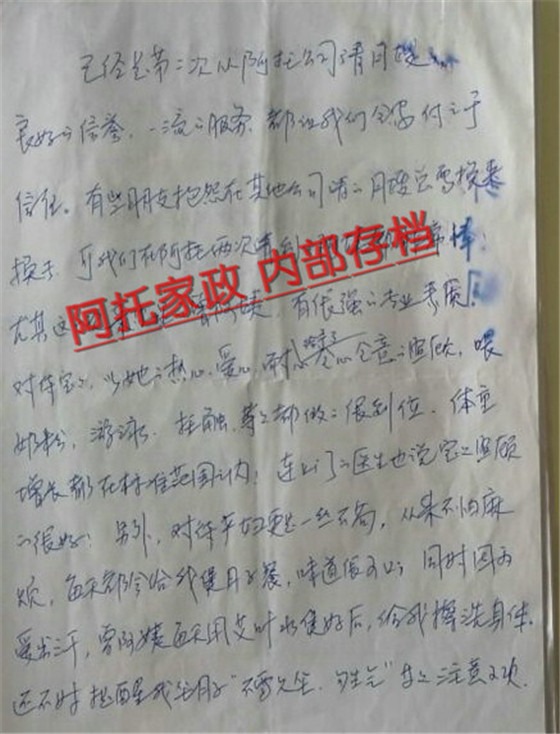 已经是第二次从阿托公司请月嫂
良好的信誉，一流的服务，都让我们全家付之于
信任。有些朋友抱怨在其他公司请的月嫂总需换来
换去，可我们在阿托两次请到
阿托家政 内部存档
尤其这 有很强的专业素质。
对待宝宝，以她的热心、爱心、耐心 全心全意的照顾，喂
奶粉，游泳，抚触，等等都做的很到位，体重
增长都在标准范围之内！连上门的医生也说宝宝照顾
的很好！另外，对待孕妇更是一丝不苟，从来不怕麻
烦，每天都会给我煲月子餐，味道很可以；同时因为
爱出汗，曾阿姨每天用艾叶水煲好后，给我擦洗身体。
还不时提醒我坐月子“不需久坐， ”等等注意事项